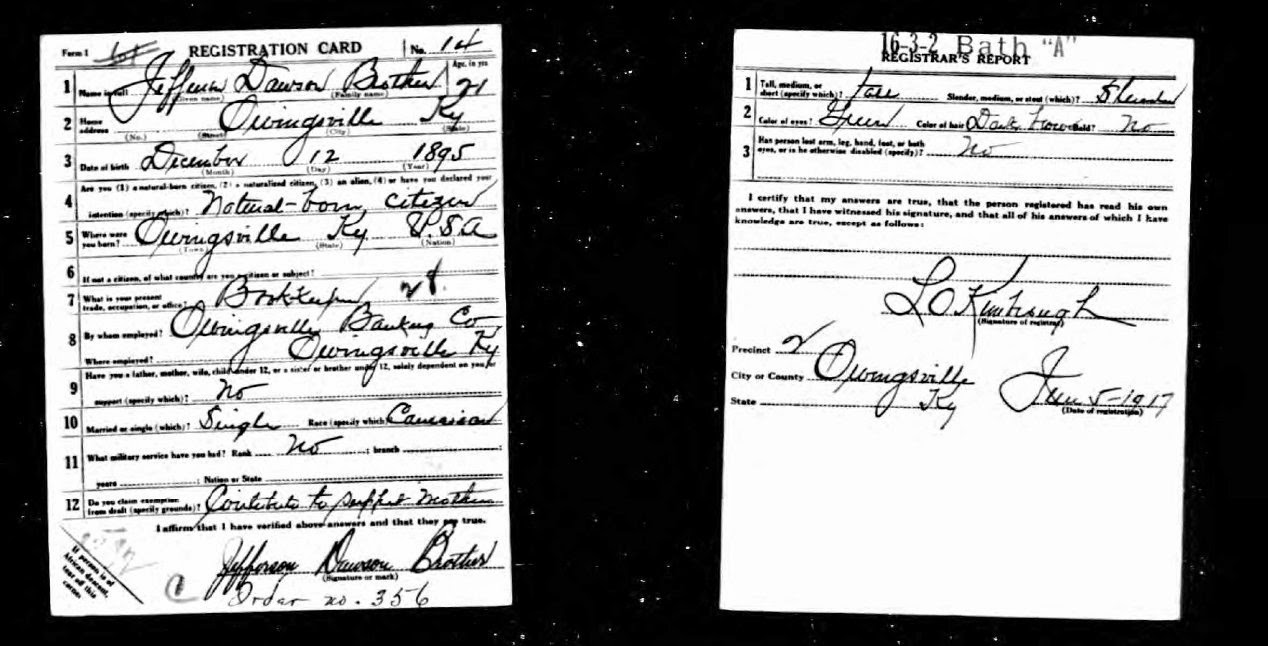 Form 1 REGISTRATION CARD No. 14
1 Name in full Jefferson Dawson Brother Age, in yrs 21
(Given name) (Family name)
2 Home address Owingsville Ky
(No.) (Street) (City) (State)
3 Date of birth December 12 1895
(Month) (Day) (Year)
Are you (1) a natural-born citizen, (2) a naturalized citizen, (3) an alien, (4) or have you declared your
4 intention (specify which)? Natural-born citizen
5 Where were you born? Owingsville Ky U.S.A
(Town) (State) (Nation)
6 If not a citizen, of what country are you a citizen or subject?
7 What is your present trade, occupation, or office? Book-Keeper
8 By whom employed? Owingsville Banking Co
Where employed? Owingsville Ky
Have you a father, mother, wife, child under 12, or a sister or brother under 12, solely dependent on you for
9 support (specify which)? No
10 Married or single (which)? Single Race (specify which) Caucasian
11 What military service have you had? Rank No ; branch ;
years ; Nation or State
12 Do you claim exemption from draft (specify grounds)? Contribute to support mother
I affirm that I have verified above answers and that they are true.
Jefferson Dawson Brother
(Signature or mark)
Order no. 356
If person is of
African descent,
tear off this
corner.
16-3-2 Bath "A"
REGISTRAR'S REPORT
1 Tall, medium, or short (specify which)? tall Slender, medium, or stout (which)? Slender
2 Color of eyes? Green Color of hair Dark brown Bald? No
3 Has person lost arm, leg, hand, foot, or both eyes, or is he otherwise disabled (specify)? No
I certify that my answers are true, that the person registered has read his own
answers, that I have witnessed his signature, and that all of his answers of which I have
knowledge are true, except as follows:
L O Kimbrough
(Signature of registrar)
Precinct 2
City or County Owingsville
State Ky
June 5-1917
(Date of registration)